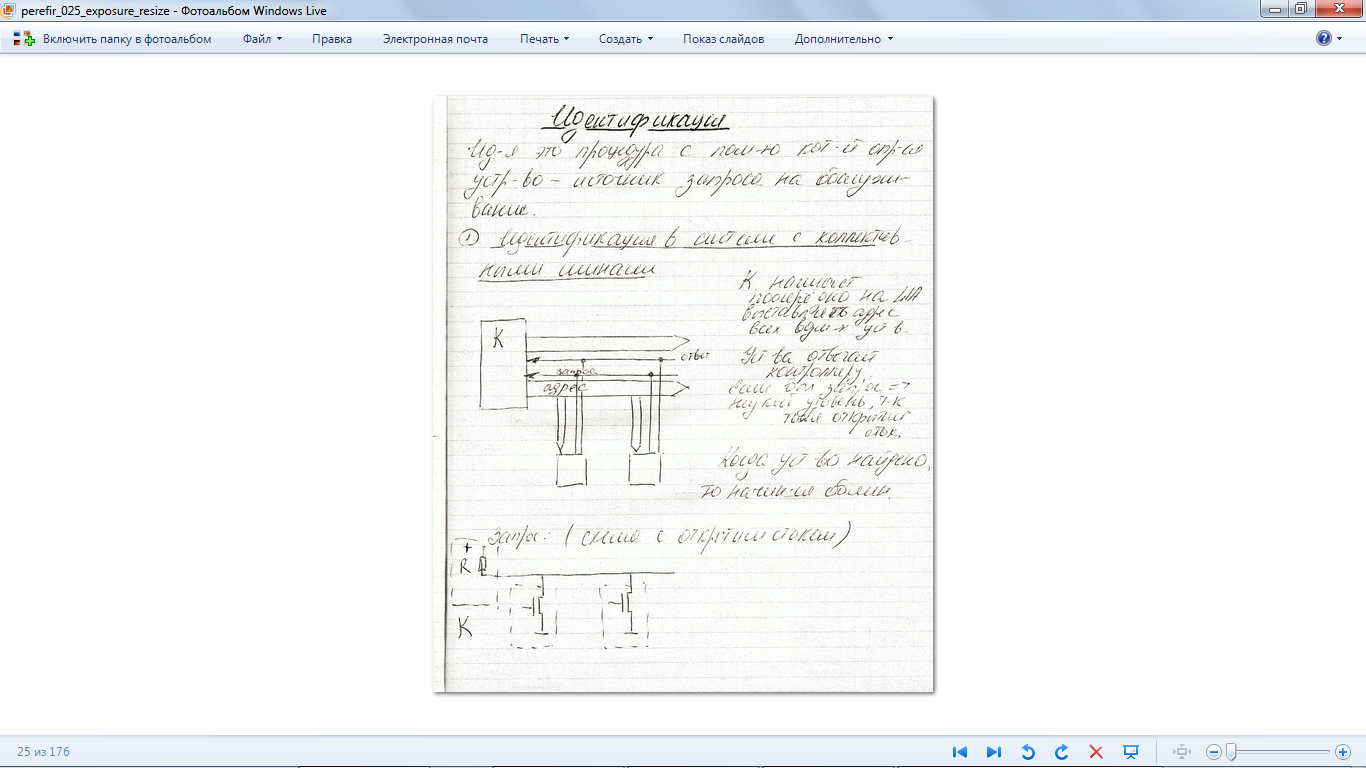 perefir_025_exposure_resize - Фотоальбом Windows Live
Включить папку в фотоальбом Файл Правка Электронная почта Печать Создать Показ слайдов Дополнительно
Идентификация
Ид-я это процедура с пом-ю кот-й опр-ся
устр-во - источник запроса на обслужи-
вание.
① Идентификация в системе с коллектив-
ными шинами
К начинает
поочерёдно на ША
выставлять адрес
всех
К
ответ
запрос
адрес
Уст ва отвечают
контроллеру.
Если был запрос =>
низкий уровень, т.к
открытый
сток.
Когда уст во найдено,
то начин-ся обслуж.
Запрос: (схема с открытым стоком)
+
R
К
25 из 176